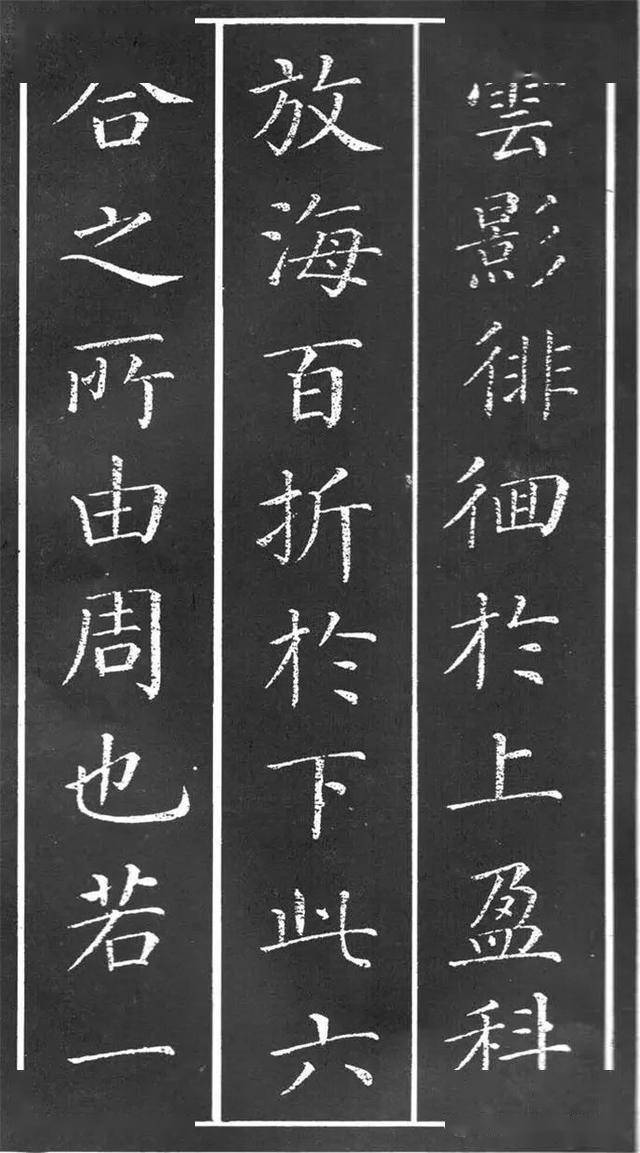 雲影徘徊於上盈科
放海百折於下此六
合之所由周也若一